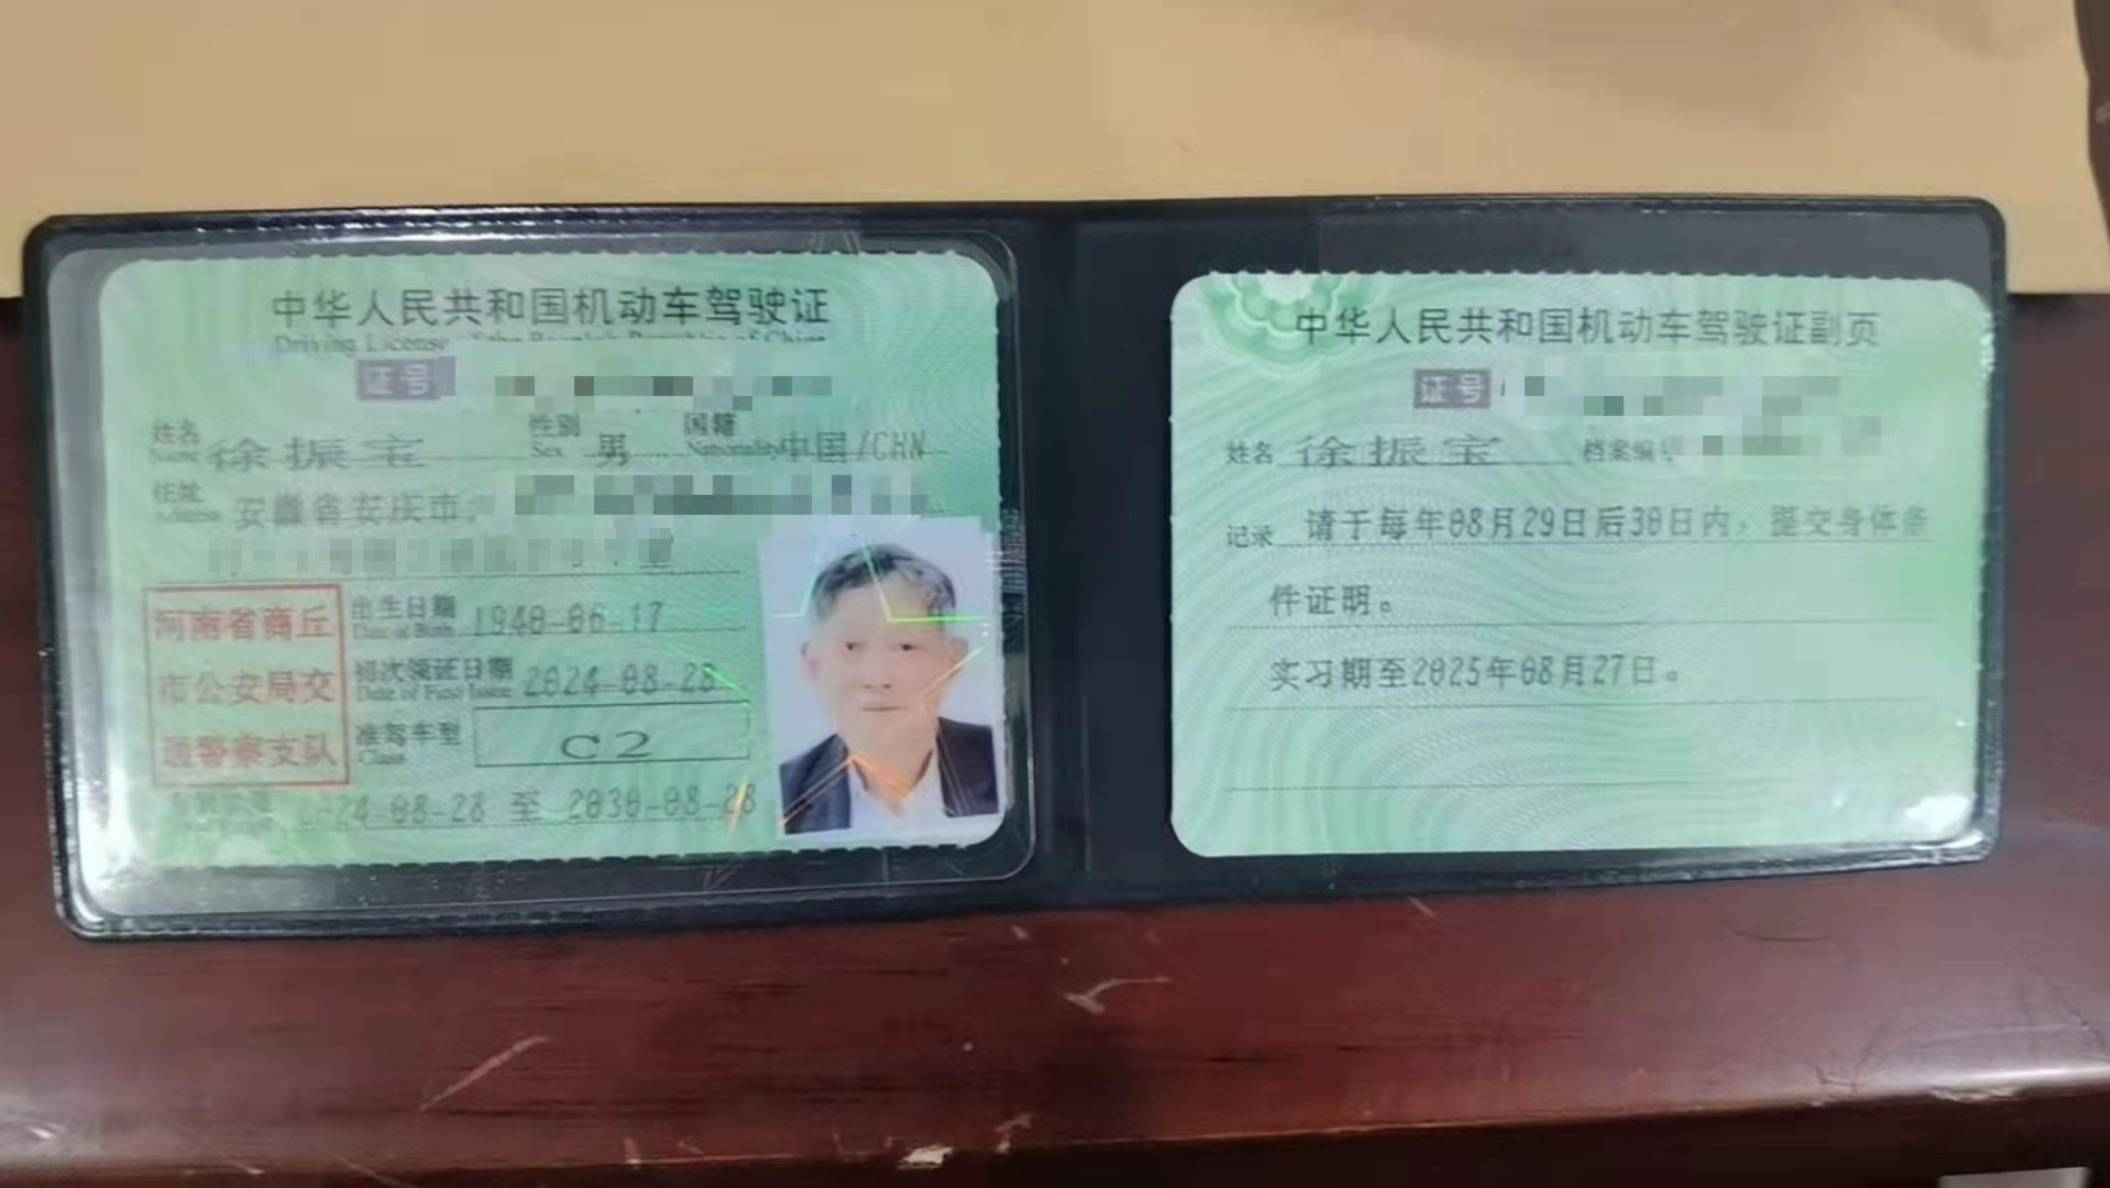 中华人民共和国机动车驾驶证
Driving License
证号
姓名 徐振宝 性别 男 国籍 中国/CHN
Name Sex Nationality
住址 安徽省安庆市
Address
河南省商丘
市公安局交
通警察支队
出生日期 1940-06-17
Date of Birth
初次领证日期 2024-08-28
Date of First Issue
准驾车型 C2
Class
24-08-28 至 2030-08-28
中华人民共和国机动车驾驶证副页
证号
姓名 徐振宝 档案编号
记录 请于每年08月29日后30日内，提交身体条
件证明。
实习期至2025年08月27日。